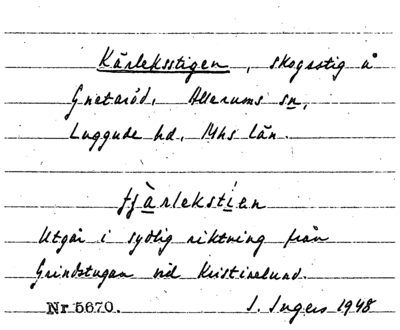 Kärleksstigen, skogsstig å
Gnetaröd, Allerums sn,
Luggude hd, Mhs län.
fjä̀rlekstíen
Utgår i sydlig riktning från
Grindstugan vid Kristinelund.
Nr 5670. I. Ingers 1948